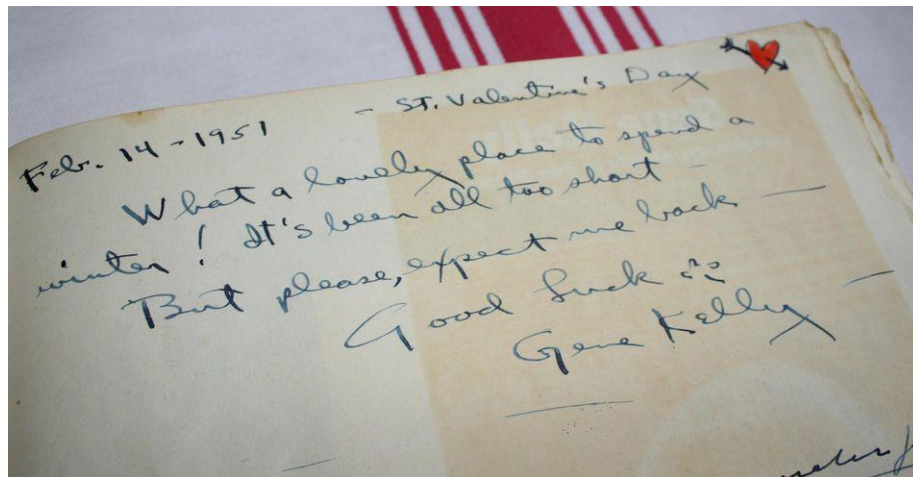 Feb. 14 - 1951 - St. Valentine's Day
What a lovely place to spend a
winter! It's been all too short -
But please, expect me back -
Good Luck
Gene Kelly -